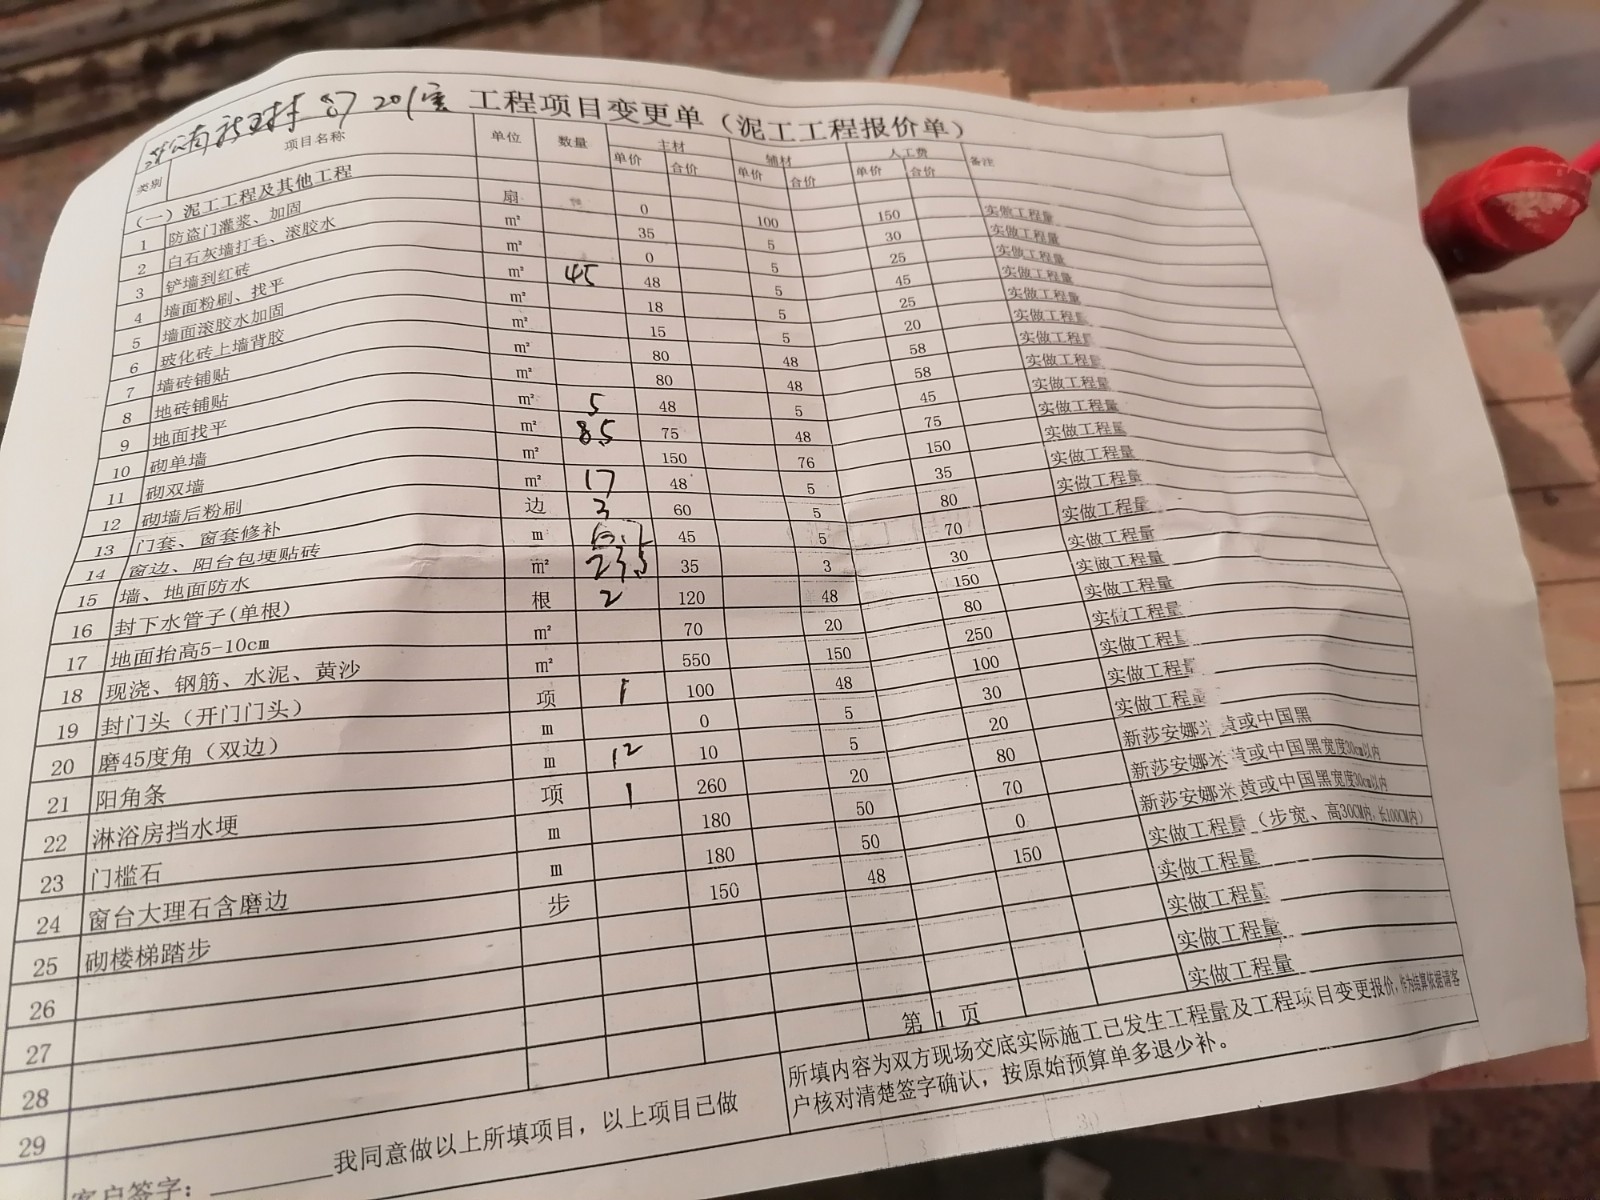 87 201室 工程项目变更单（泥工工程报价单）
类别 项目名称 单位 数量 主材 辅材 人工费 备注
单价 合价 单价 合价 单价 合价
（一）泥工工程及其他工程
1 防盗门灌浆、加固 扇 0 100 150 实做工程量
2 白石灰墙打毛、滚胶水 m² 35 5 30 实做工程量
3 铲墙到红砖 m² 0 5 25 实做工程量
4 墙面粉刷、找平 m² 45 48 5 45 实做工程量
5 墙面滚胶水加固 m² 18 5 25 实做工程量
6 玻化砖上墙背胶 m² 15 5 20 实做工程量
7 墙砖铺贴 m² 80 48 58 实做工程量
8 地砖铺贴 m² 80 48 58 实做工程量
9 地面找平 m² 5 48 5 45 实做工程量
10 砌单墙 m² 8.5 75 48 75 实做工程量
11 砌双墙 m² 150 76 150 实做工程量
12 砌墙后粉刷 m² 17 48 5 35 实做工程量
13 门套、窗套修补 边 3 60 5 80 实做工程量
14 窗边、阳台包埂贴砖 m 45 5 70 实做工程量
15 墙、地面防水 m² 23.5 35 3 30 实做工程量
16 封下水管子(单根) 根 2 120 48 150 实做工程量
17 地面抬高5-10cm m² 70 20 80 实做工程量
18 现浇、钢筋、水泥、黄沙 m² 550 150 250 实做工程量
19 封门头（开门门头） 项 1 100 48 100 实做工程量
20 磨45度角（双边） m 0 5 30 实做工程量
21 阳角条 m 12 10 5 20 实做工程量
22 淋浴房挡水埂 项 1 260 20 80 新莎安娜米黄或中国黑
23 门槛石 m 180 50 70 新莎安娜米黄或中国黑宽度30cm以内
24 窗台大理石含磨边 m 180 50 0 新莎安娜米黄或中国黑宽度30cm以内
25 砌楼梯踏步 步 150 48 150 实做工程量（步宽、高30CM内，长100CM内）
26 实做工程量
27 实做工程量
28 实做工程量
29 实做工程量
第 1 页
所填内容为双方现场交底实际施工已发生工程量及工程项目变更报价，作为结算依据请客
户核对清楚签字确认，按原始预算单多退少补。
客户签字：________我同意做以上所填项目，以上项目已做